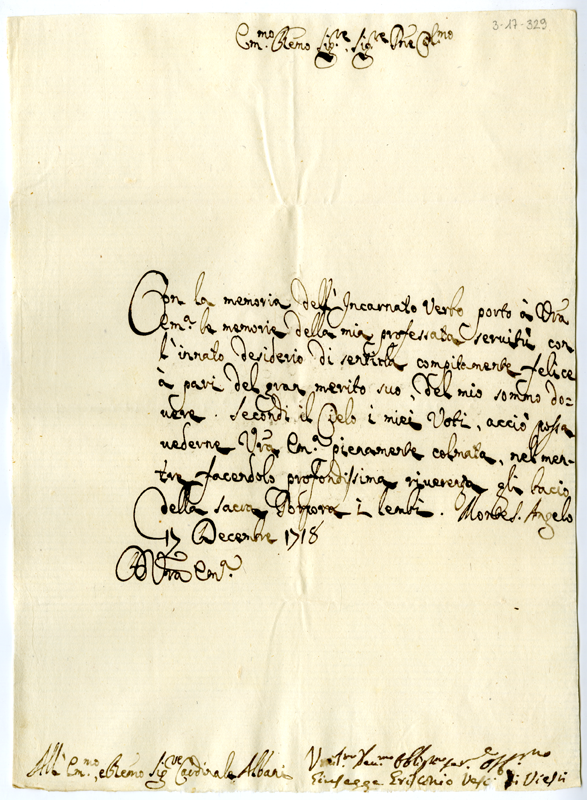 3-17-329
Em.mo e Rev.mo Sig.re Sig.re P̃ne Col.mo
Con la memoria dell'Incarnato Verbo porto à Vr̃a
Em.a le memorie della mia professata servitù con
l'innato desiderio di sentirla compitamente felice
à pari del gran merito suo, del mio sommo do-
vere. Secondi il Cielo i miei Voti, acciò possa
vederne Vr̃a Em.a pienamente colmata, nel men-
tre facendole profondissima riverenza gli bacio
della sacra Porpora i lembi. Monte S. Angelo
17 Decembre 1718
D Vr̃a Em.a
All'Em.mo, e Rev.mo Sig.re Cardinale Albani
Um.mo Dev.mo Obbl.mo ser.e
Giuseppe Vesc.o di Viesti